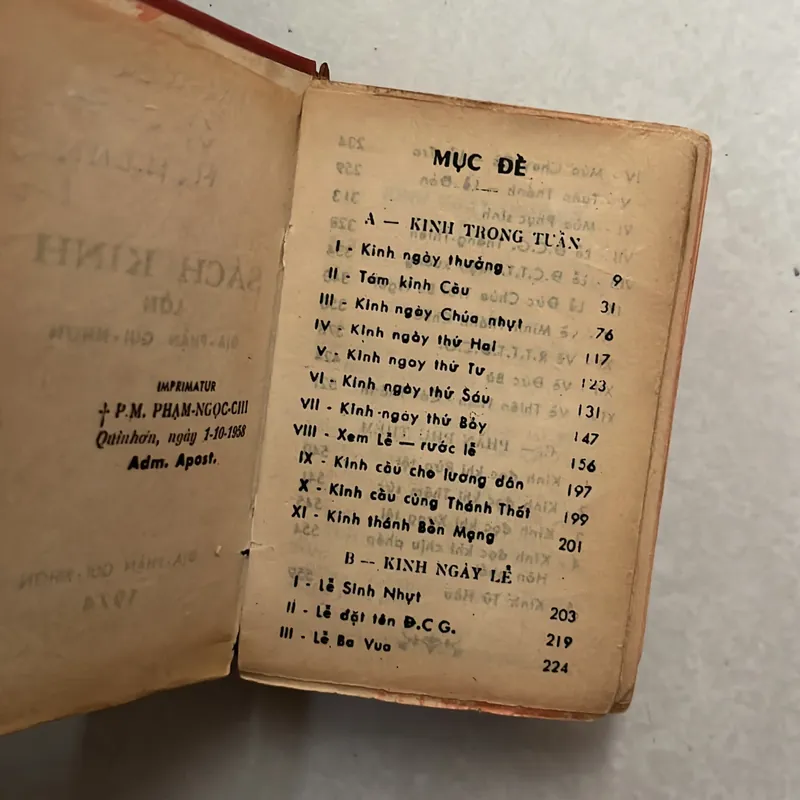 IMPRIMATUR
† P.M. PHẠM-NGỌC-CHI
Quinhơn, ngày 1-10-1958
Adm. Apost.
SÁCH KINH
LỚN
ĐỊA-PHẬN QUI-NHƠN
ĐỊA-PHẬN QUI-NHƠN
1974
MỤC ĐỀ
A — KINH TRONG TUẦN
I - Kinh ngày thường 9
II - Tám kinh Cầu 31
III - Kinh ngày Chúa nhựt 76
IV - Kinh ngày thứ Hai 117
V - Kinh ngoy thứ Tư 123
VI - Kinh ngày thứ Sáu 131
VII - Kinh ngày thứ Bảy 147
VIII - Xem Lễ — rước lễ 156
IX - Kinh cầu cho lương dân 197
X - Kinh cầu cùng Thánh Thất 199
XI - Kinh thánh Bổn Mạng 201
B -- KINH NGÀY LỄ
I - Lễ Sinh Nhựt 203
II - Lễ đặt tên Đ.C G. 219
III - Lễ Ba Vua 224